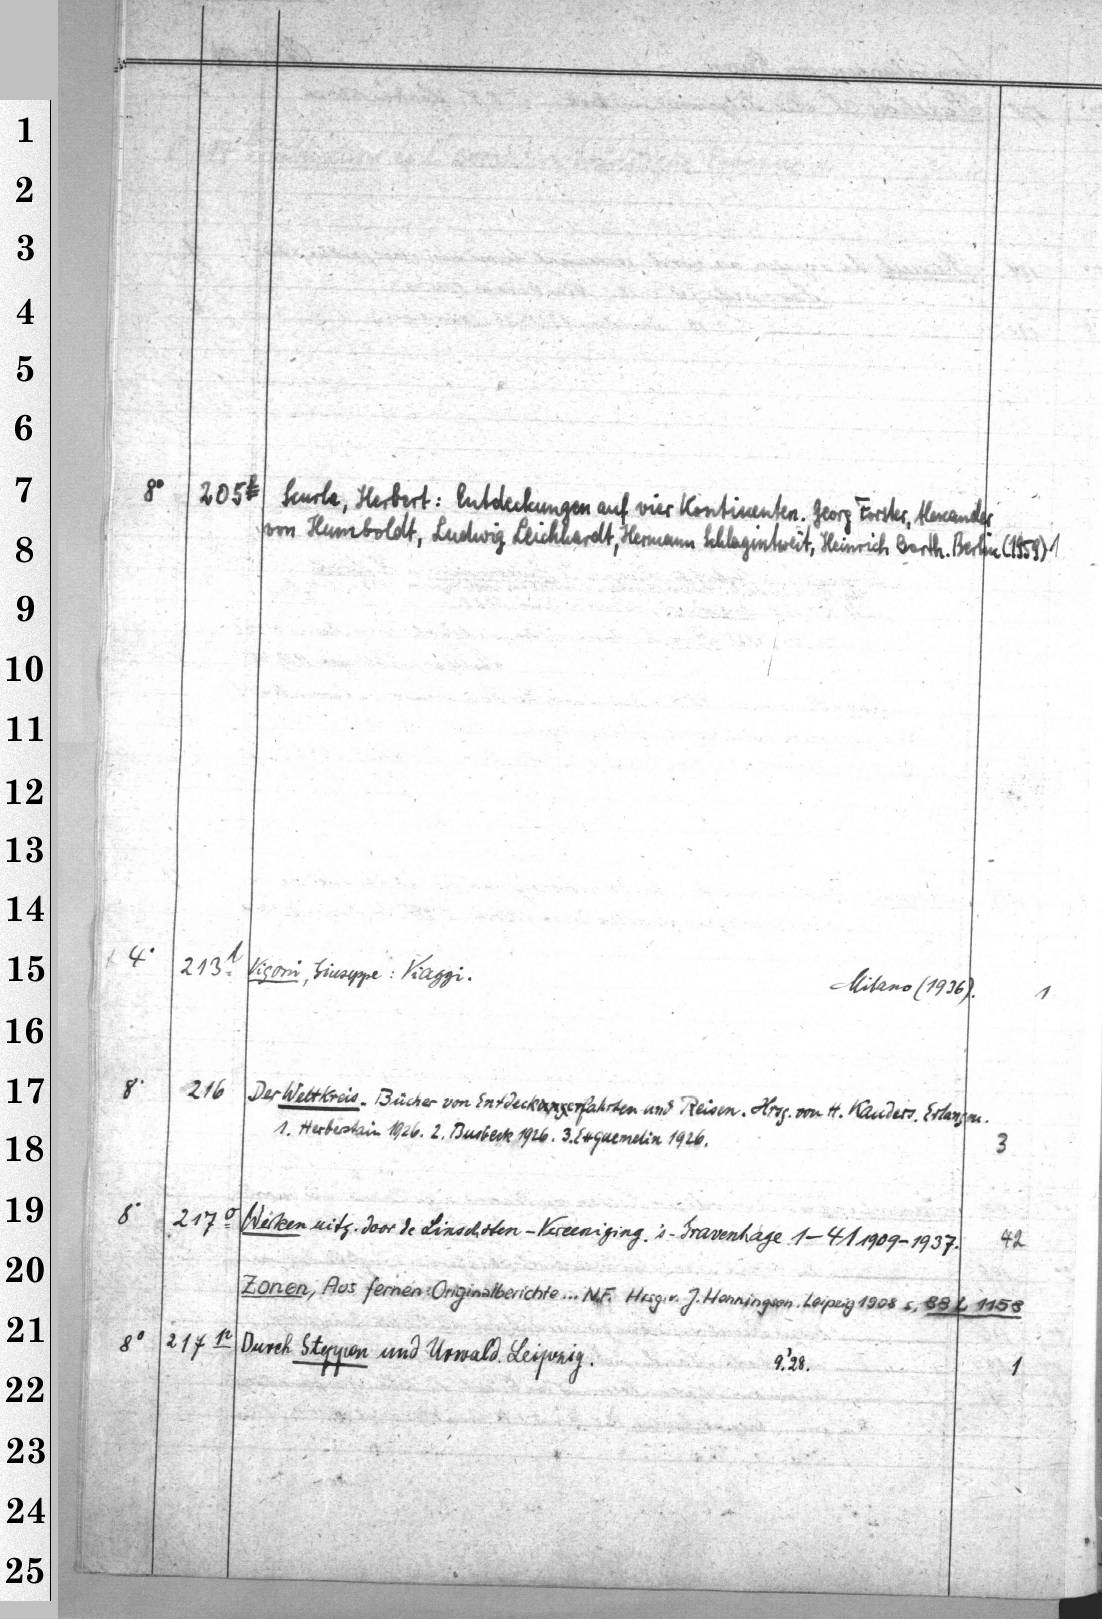 1
2
3
4
5
6
7
8° 205 Scurla, Herbert: Entdeckungen auf vier Kontinenten. Georg Forster, Alexander
8
von Humboldt, Ludwig Leichhardt, Hermann Schlagintweit, Heinrich Barth. Berlin (1959) 1
9
10
11
12
13
14
15
4° 213 1 Vigoni, Giuseppe: Viaggi. Milano (1936). 1
16
17
8° 216 Der Weltkreis. Bücher von Entdeckungsfahrten und Reisen. Hrsg. von H. Kauders. Erlangen.
1. Herberstain 1926. 2. Busbeck 1926. 3. Exquemelin 1926. 3
18
19
8° 217 o Werken uitg. door de Linschoten-Vereeniging. 's-Gravenhage 1-41 1909-1937. 42
20
Zonen, Aus fernen: Originalberichte... N.F. Hrsg. v. J. Henningsen. Leipzig 1908 s. 88 L 1158
21
8° 217 Durch Steppen und Urwald. Leipzig. 9.'28. 1
22
23
24
25